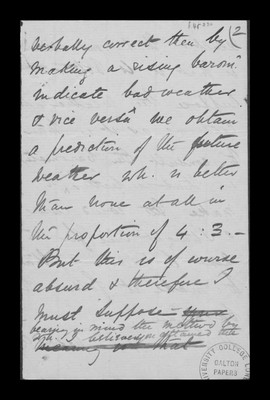 2
verbally correct then by
making a rising baromr
indicate bad weather
& vice versâ we obtain
a prediction of the future
weather wh. is better
than none at all in
the proportion of 4 : 3. –
But this is of course
absurd & therefore I
must suppose
bearing in mind the method by
wh. I believe obtained the
meaning that
UNIVERSITY COLLEGE LONDON
GALTON
PAPERS